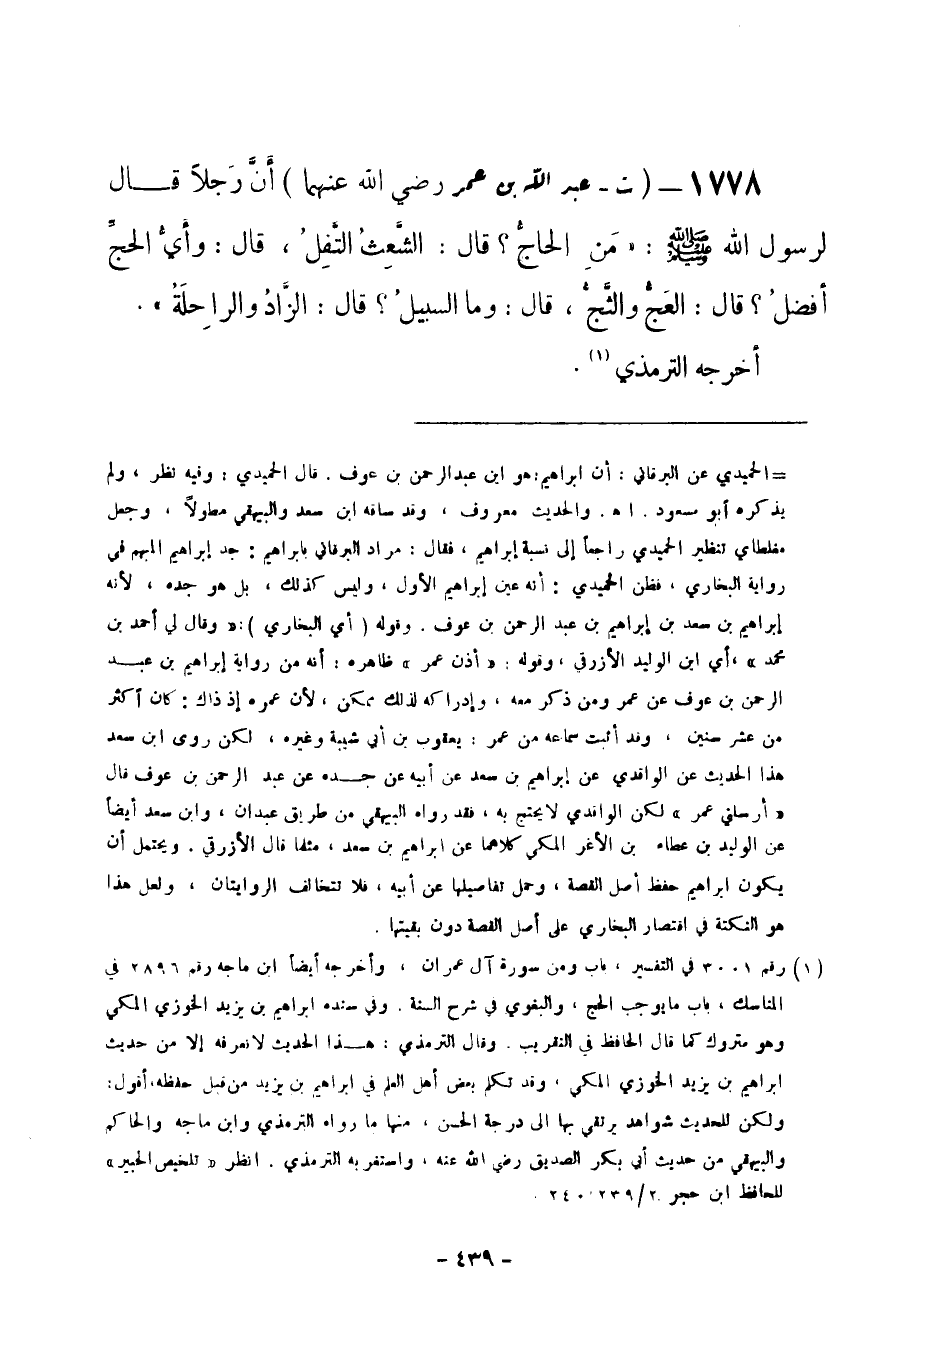 ١٧٧٨ – ( ت - عبد الله بن عمر رضي الله عنهما ) أَنَّ رَجلاً قـــال
لرسول الله ﷺ : « مَنِ الحاجُّ ؟ قال : الشَّعِثُ التَّفِلُ ، قال : وأَيُّ الحجِّ
أفضلُ ؟ قال : العَجُّ والثَّجُّ ، قال : وما السبيلُ ؟ قال : الزَّادُ والراحِلَةُ » .
أخرجه الترمذي (١) .
= الحميدي عن البرقاني : أن ابراهيم : هو ابن عبدالرحمن بن عوف . قال الحميدي : وفيه نظر ، ولم
يذكره أبو مسعود . ا ه . والحديث معروف ، وقد ساقه ابن سعد والبيهقي مطولاً ، وجعل
مغلطاي تنظير الحميدي راجعاً إلى نسبة إبراهيم ، فقال : مراد البرقاني بابراهيم : جد إبراهيم المبهم في
رواية البخاري ، فظن الحميدي : أنه عين إبراهيم الأول ، وليس كذلك ، بل هو جده ، لأنه
إبراهيم بن سعد بن إبراهيم بن عبد الرحمن بن عوف . وقوله ( أي البخاري ) : « وقال لي أحمد بن
محمد » ، أي ابن الوليد الأزرقي ، وقوله : « أذن عمر » ظاهره : أنه من رواية إبراهيم بن عبـــد
الرحمن بن عوف عن عمر ومن ذكر معه ، وإدراكه لذلك ممكن ، لأن عمره إذ ذاك : كان أكثر
من عشر سنين ، وقد أثبت سماعه من عمر : يعقوب بن أبي شيبة وغيره ، لكن روى ابن سعد
هذا الحديث عن الواقدي عن إبراهيم بن سعد عن أبيه عن جـــده عن عبد الرحمن بن عوف قال
« أرسلني عمر » لكن الواقدي لايحتج به ، فقد رواه البيهقي من طريق عبدان ، وابن سعد أيضاً
عن الوليد بن عطاء بن الأغر المكي كلاهما عن ابراهيم بن سعد ، مثلما قال الأزرقي . ويحتمل أن
يكون ابراهيم حفظ أصل القصة ، وحمل تفاصيلها عن أبيه ، فلا تتخالف الروايتان ، ولعل هذا
هو النكتة في اقتصار البخاري على أصل القصة دون بقيتها .
(١) رقم ٣٠٠١ في التفسير ، باب ومن سورة آل عمران ، وأخرجه أيضاً ابن ماجه رقم ٢٨٩٦ في
المناسك ، باب مايوجب الحج ، والبغوي في شرح السنة . وفي سنده ابراهيم بن يزيد الخوزي المكي
وهو متروك كما قال الحافظ في التقريب . وقال الترمذي : هـــذا الحديث لانعرفه إلا من حديث
ابراهيم بن يزيد الخوزي المكي ، وقد تكلم بعض أهل العلم في ابراهيم بن يزيد من قبل حفظه ، أقول :
ولكن للحديث شواهد يرتقي بها الى درجة الحسن ، منها ما رواه الترمذي وابن ماجه والحاكم
والبيهقي من حديث أبي بكر الصديق رضي الله عنه ، واستغربه الترمذي . انظر « تلخيص الحبير »
للحافظ ابن حجر ٢/٢٣٩ ، ٢٤٠ .
- ٤٣٩ -